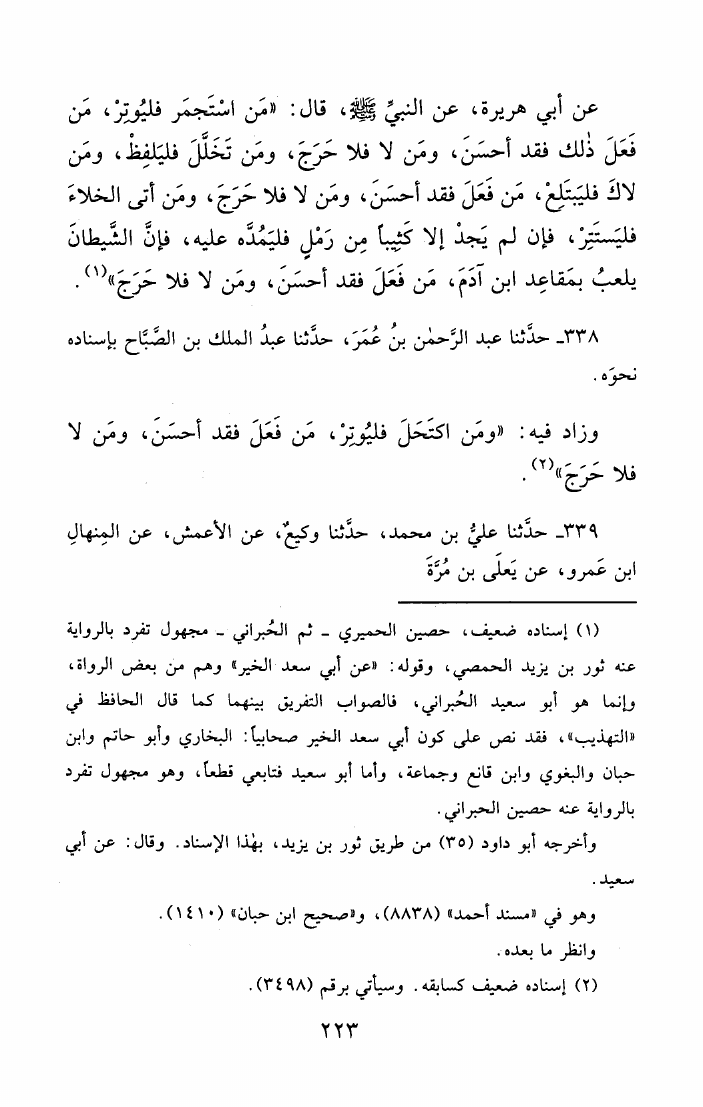 عن أبي هريرة، عن النبيِّ ﷺ، قال: «مَن اسْتَجمَر فليُوتِرْ، مَن
فَعَلَ ذٰلك فقد أحسَنَ، ومَن لا فلا حَرَجَ، ومَن تَخَلَّلَ فليَلفِظْ، ومَن
لاكَ فليَبتَلِعْ، مَن فَعَلَ فقد أحسَنَ، ومَن لا فلا حَرَجَ، ومَن أتى الخلاءَ
فليَستَتِرْ، فإن لم يَجدْ إلا كَثِيباً مِن رَمْلٍ فليَمُدَّه عليه، فإنَّ الشَّيطانَ
يلعبُ بمَقاعِد ابن آدَمَ، مَن فَعَلَ فقد أحسَنَ، ومَن لا فلا حَرَجَ»(١).
٣٣٨ـ حدَّثنا عبد الرَّحمٰن بنُ عُمَرَ، حدَّثنا عبدُ الملك بن الصَّبَّاح بإسناده
نحوَه.
وزاد فيه: «ومَن اكتَحَلَ فليُوتِرْ، مَن فَعَلَ فقد أحسَنَ، ومَن لا
فلا حَرَجَ»(٢).
٣٣٩ـ حدَّثنا عليُّ بن محمد، حدَّثنا وكيعٌ، عن الأعمش، عن المِنهالِ
ابن عَمرو، عن يَعلَى بن مُرَّةَ
(١) إسناده ضعيف، حصين الحميري - ثم الحُبراني - مجهول تفرد بالرواية
عنه ثور بن يزيد الحمصي، وقوله: «عن أبي سعد الخير» وهم من بعض الرواة،
وإنما هو أبو سعيد الحُبراني، فالصواب التفريق بينهما كما قال الحافظ في
«التهذيب»، فقد نص على كون أبي سعد الخير صحابياً: البخاري وأبو حاتم وابن
حبان والبغوي وابن قانع وجماعة، وأما أبو سعيد فتابعي قطعاً، وهو مجهول تفرد
بالرواية عنه حصين الحبراني.
وأخرجه أبو داود (٣٥) من طريق ثور بن يزيد، بهٰذا الإسناد. وقال: عن أبي
سعيد.
وهو في «مسند أحمد» (٨٨٣٨)، و«صحيح ابن حبان» (١٤١٠).
وانظر ما بعده.
(٢) إسناده ضعيف كسابقه. وسيأتي برقم (٣٤٩٨).
٢٢٣